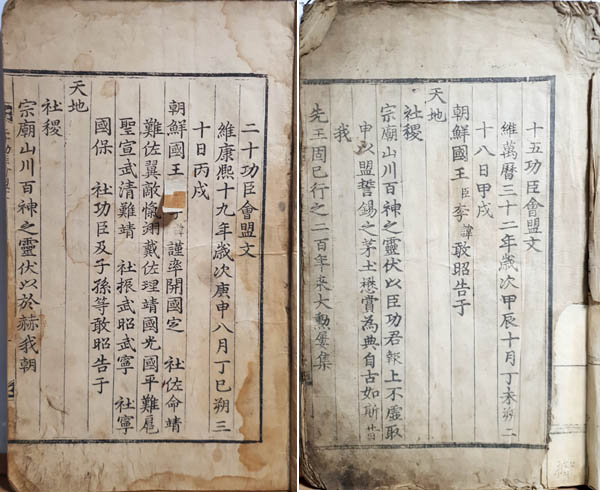 二十功臣會盟文
維康熙十九年歲次庚申八月丁巳朔三
十日丙戌
朝鮮國王 諱 謹率開國定 社佐命靖
難佐翼敵愾翊戴佐理靖國光國平難扈
聖宣武清難靖 社振武昭武寧 社寧
國保 社功臣及子孫等敢昭告于
天地
社稷
宗廟山川百神之靈伏以於赫我朝
十五功臣會盟文
維萬曆三十二年歲次甲辰十月丁未朔二
十八日甲戌
朝鮮國王臣李諱敢昭告于
天地
社稷
宗廟山川百神之靈伏以臣功君報上不虛取
申以盟誓錫之茅土懋賞為典自古如斯昔
我
先王固已行之二百年来大勳屢集